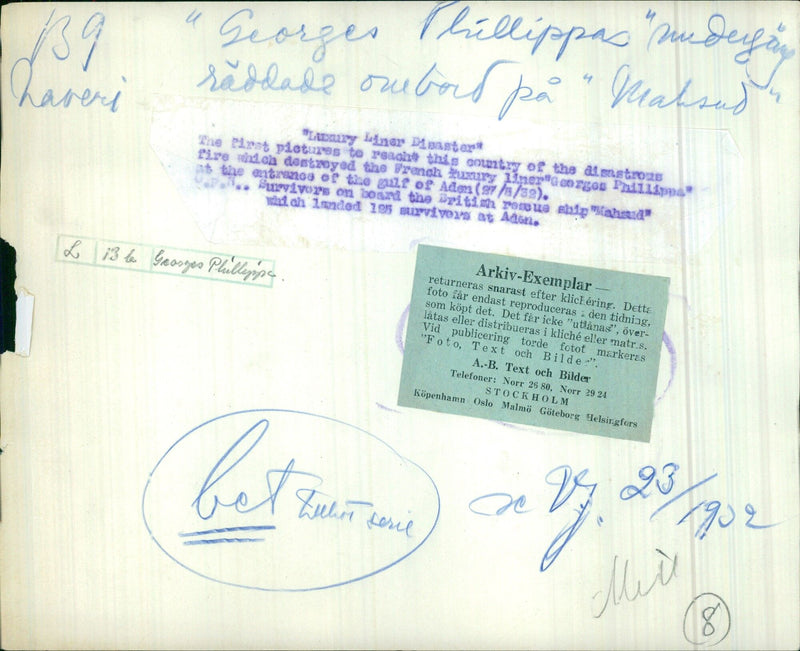 B9 "Georges Phillippas" undergång
räddade ombord på "Mahsud"
"Luxury Liner Disaster"
The first pictures to reach this country of the disastrous
fire which destroyed the French luxury liner "Georges Phillippa"
at the entrance of the gulf of Aden (27/5/32).
Survivors on board the British rescue ship "Mahsud"
which landed 125 survivors at Aden.
L 13 Georges Phillippa.
Arkiv-Exemplar —
returneras snarast efter klichéring. Detta
foto får endast reproduceras i den tidning,
som köpt det. Det får icke "utlånas", över-
låtas eller distribueras i kliché eller matris.
Vid publicering torde fotot markeras
"Foto, Text och Bilder".
A.-B. Text och Bilder
Telefoner: Norr 26 80, Norr 29 24
STOCKHOLM
Köpenhamn Oslo Malmö Göteborg Helsingfors
bet serie
Vj. 23/1932
8